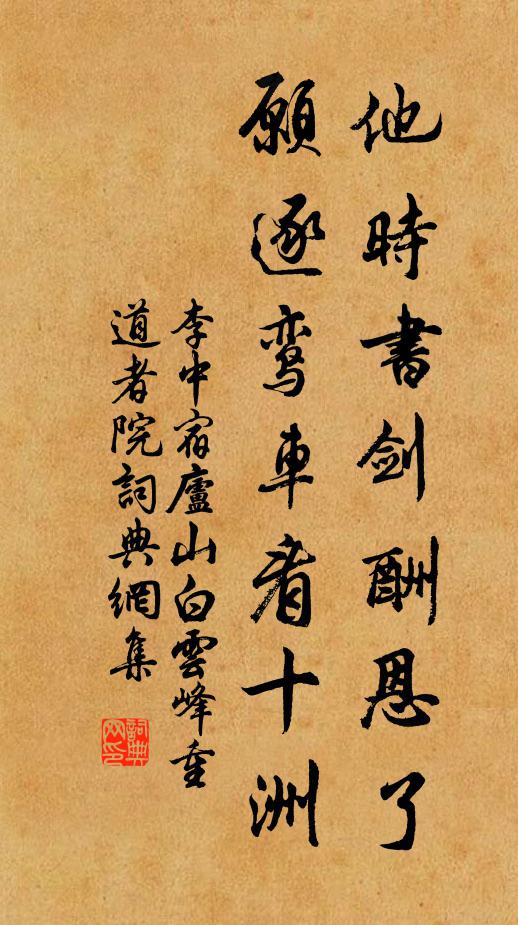 他時書劍酬恩了
願逐鸾車看十洲
李中宿廬山白雲峰重
道者院詞典網集
詞典
网印